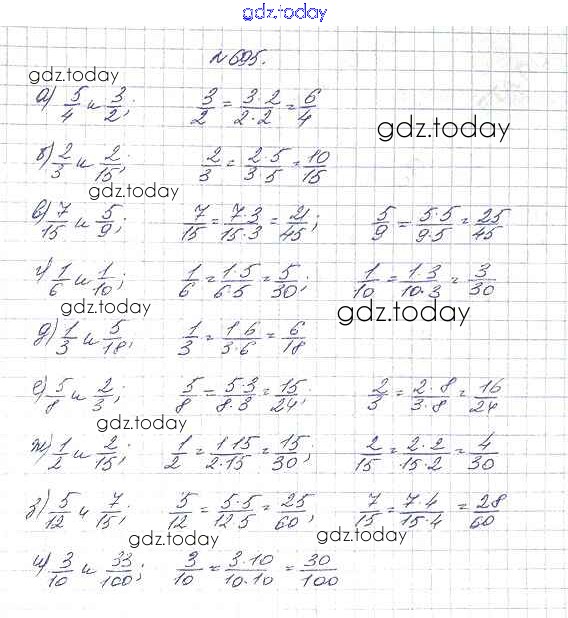 gdz.today
№ 695.
gdz.today
а) 5/4 и 3/2; 3/2 = 3·2/2·2 = 6/4
gdz.today
б) 2/3 и 2/15; 2/3 = 2·5/3·5 = 10/15
gdz.today
в) 7/15 и 5/9; 7/15 = 7·3/15·3 = 21/45; 5/9 = 5·5/9·5 = 25/45
г) 1/6 и 1/10; 1/6 = 1·5/6·5 = 5/30; 1/10 = 1·3/10·3 = 3/30
gdz.today gdz.today
д) 1/3 и 5/18; 1/3 = 1·6/3·6 = 6/18
е) 5/8 и 2/3; 5/8 = 5·3/8·3 = 15/24; 2/3 = 2·8/3·8 = 16/24
gdz.today
ж) 1/2 и 2/15; 1/2 = 1·15/2·15 = 15/30; 2/15 = 2·2/15·2 = 4/30
з) 5/12 и 7/15; 5/12 = 5·5/12·5 = 25/60; 7/15 = 7·4/15·4 = 28/60
gdz.today gdz.today
и) 3/10 и 33/100; 3/10 = 3·10/10·10 = 30/100